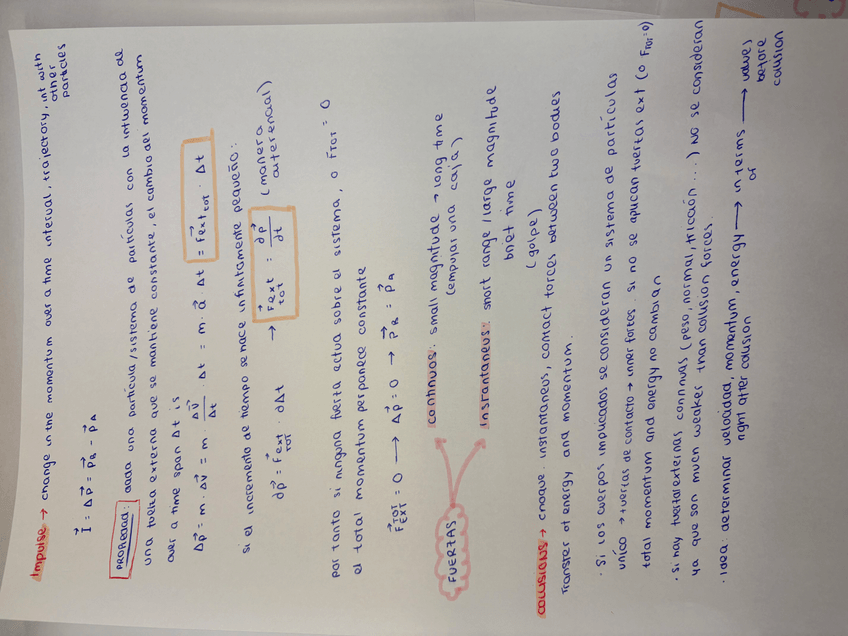 Impulse → change in the momentum over a time interval, trajectory, int with other particles
I⃗ = Δp⃗ = p⃗_B - p⃗_A
PROPIEDAD: dada una partícula/sistema de partículas con la influencia de
una fuerza externa que se mantiene constante, el cambio del momentum
over a time span Δt is
Δp⃗ = m · Δv⃗ = m · Δv⃗/Δt · Δt = m · a⃗ Δt = F⃗ext tot · Δt
si el incremento de tiempo se hace infinitamente pequeño:
dp⃗ = F⃗ext tot · dΔt → F⃗ext tot = dp⃗/dt (manera diferencial)
por tanto si ninguna fuerza actua sobre el sistema, o F_TOT = 0
el total momentum permanece constante
F⃗ TOT EXT = 0 → Δp⃗ = 0 → p⃗_B = p⃗_A
FUERZAS
continuos: small magnitude → long time
(empujar una caja)
Instantaneus: short range/large magnitude
brief time
(golpe)
COLLISIONS → choque. instantaneus, contact forces between two bodies
Transfer of energy and momentum.
· Si los cuerpos implicados se consideran un sistema de partículas
único → fuerzas de contacto → inner fortes. Si no se aplican fuertas ext (o F_TOT=0)
total momentum and energy no cambian
· si hay fuertas externas continuas (peso, normal, fricción ...) NO se consideran
ya que son much weaker than collision forces.
· Idea: determinar velocidad, momentum, energy → in terms of → values before collision
right after collision